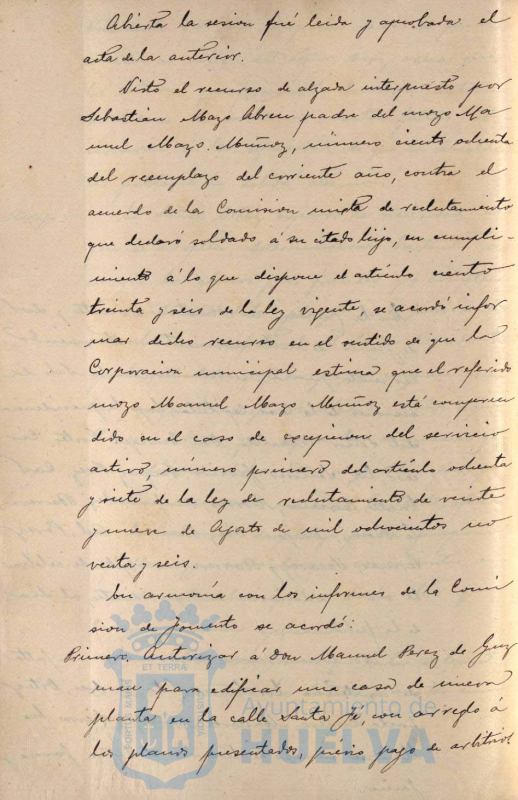 Abierta la sesion fué leida y aprobada el
acta de la anterior.
Visto el recurso de alzada interpuesto por
Sebastian Mazo Abreu padre del mozo Ma
nuel Mazo Muñoz, número ciento ochenta
del reemplazo del corriente año, contra el
acuerdo de la Comision mixta de reclutamiento
que declaró soldado á su citado hijo, en cumpli-
miento á lo que dispone el artículo ciento
treinta y seis de la ley vigente, se acordó infor
mar dicho recurso en el sentido de que la
Corporacion municipal estima que el referido
mozo Manuel Mazo Muñoz está compren
dido en el caso de excepcion del servicio
activo, número primero del artículo ochenta
y siete de la ley de reclutamiento de veinte
y nueve de Agosto de mil ochocientos no
venta y seis.
En armonía con los informes de la Comi
sion de Fomento se acordó:
Primero. Autorizar á Don Manuel Perez de Guz
man para edificar una casa de nueva
planta en la calle Santa Fé con arreglo á
los planos presentados, previo pago de arbitrios.
PORTUS MARIS
ET TERRÆ
CUSTODIA
Ayuntamiento de
HUELVA